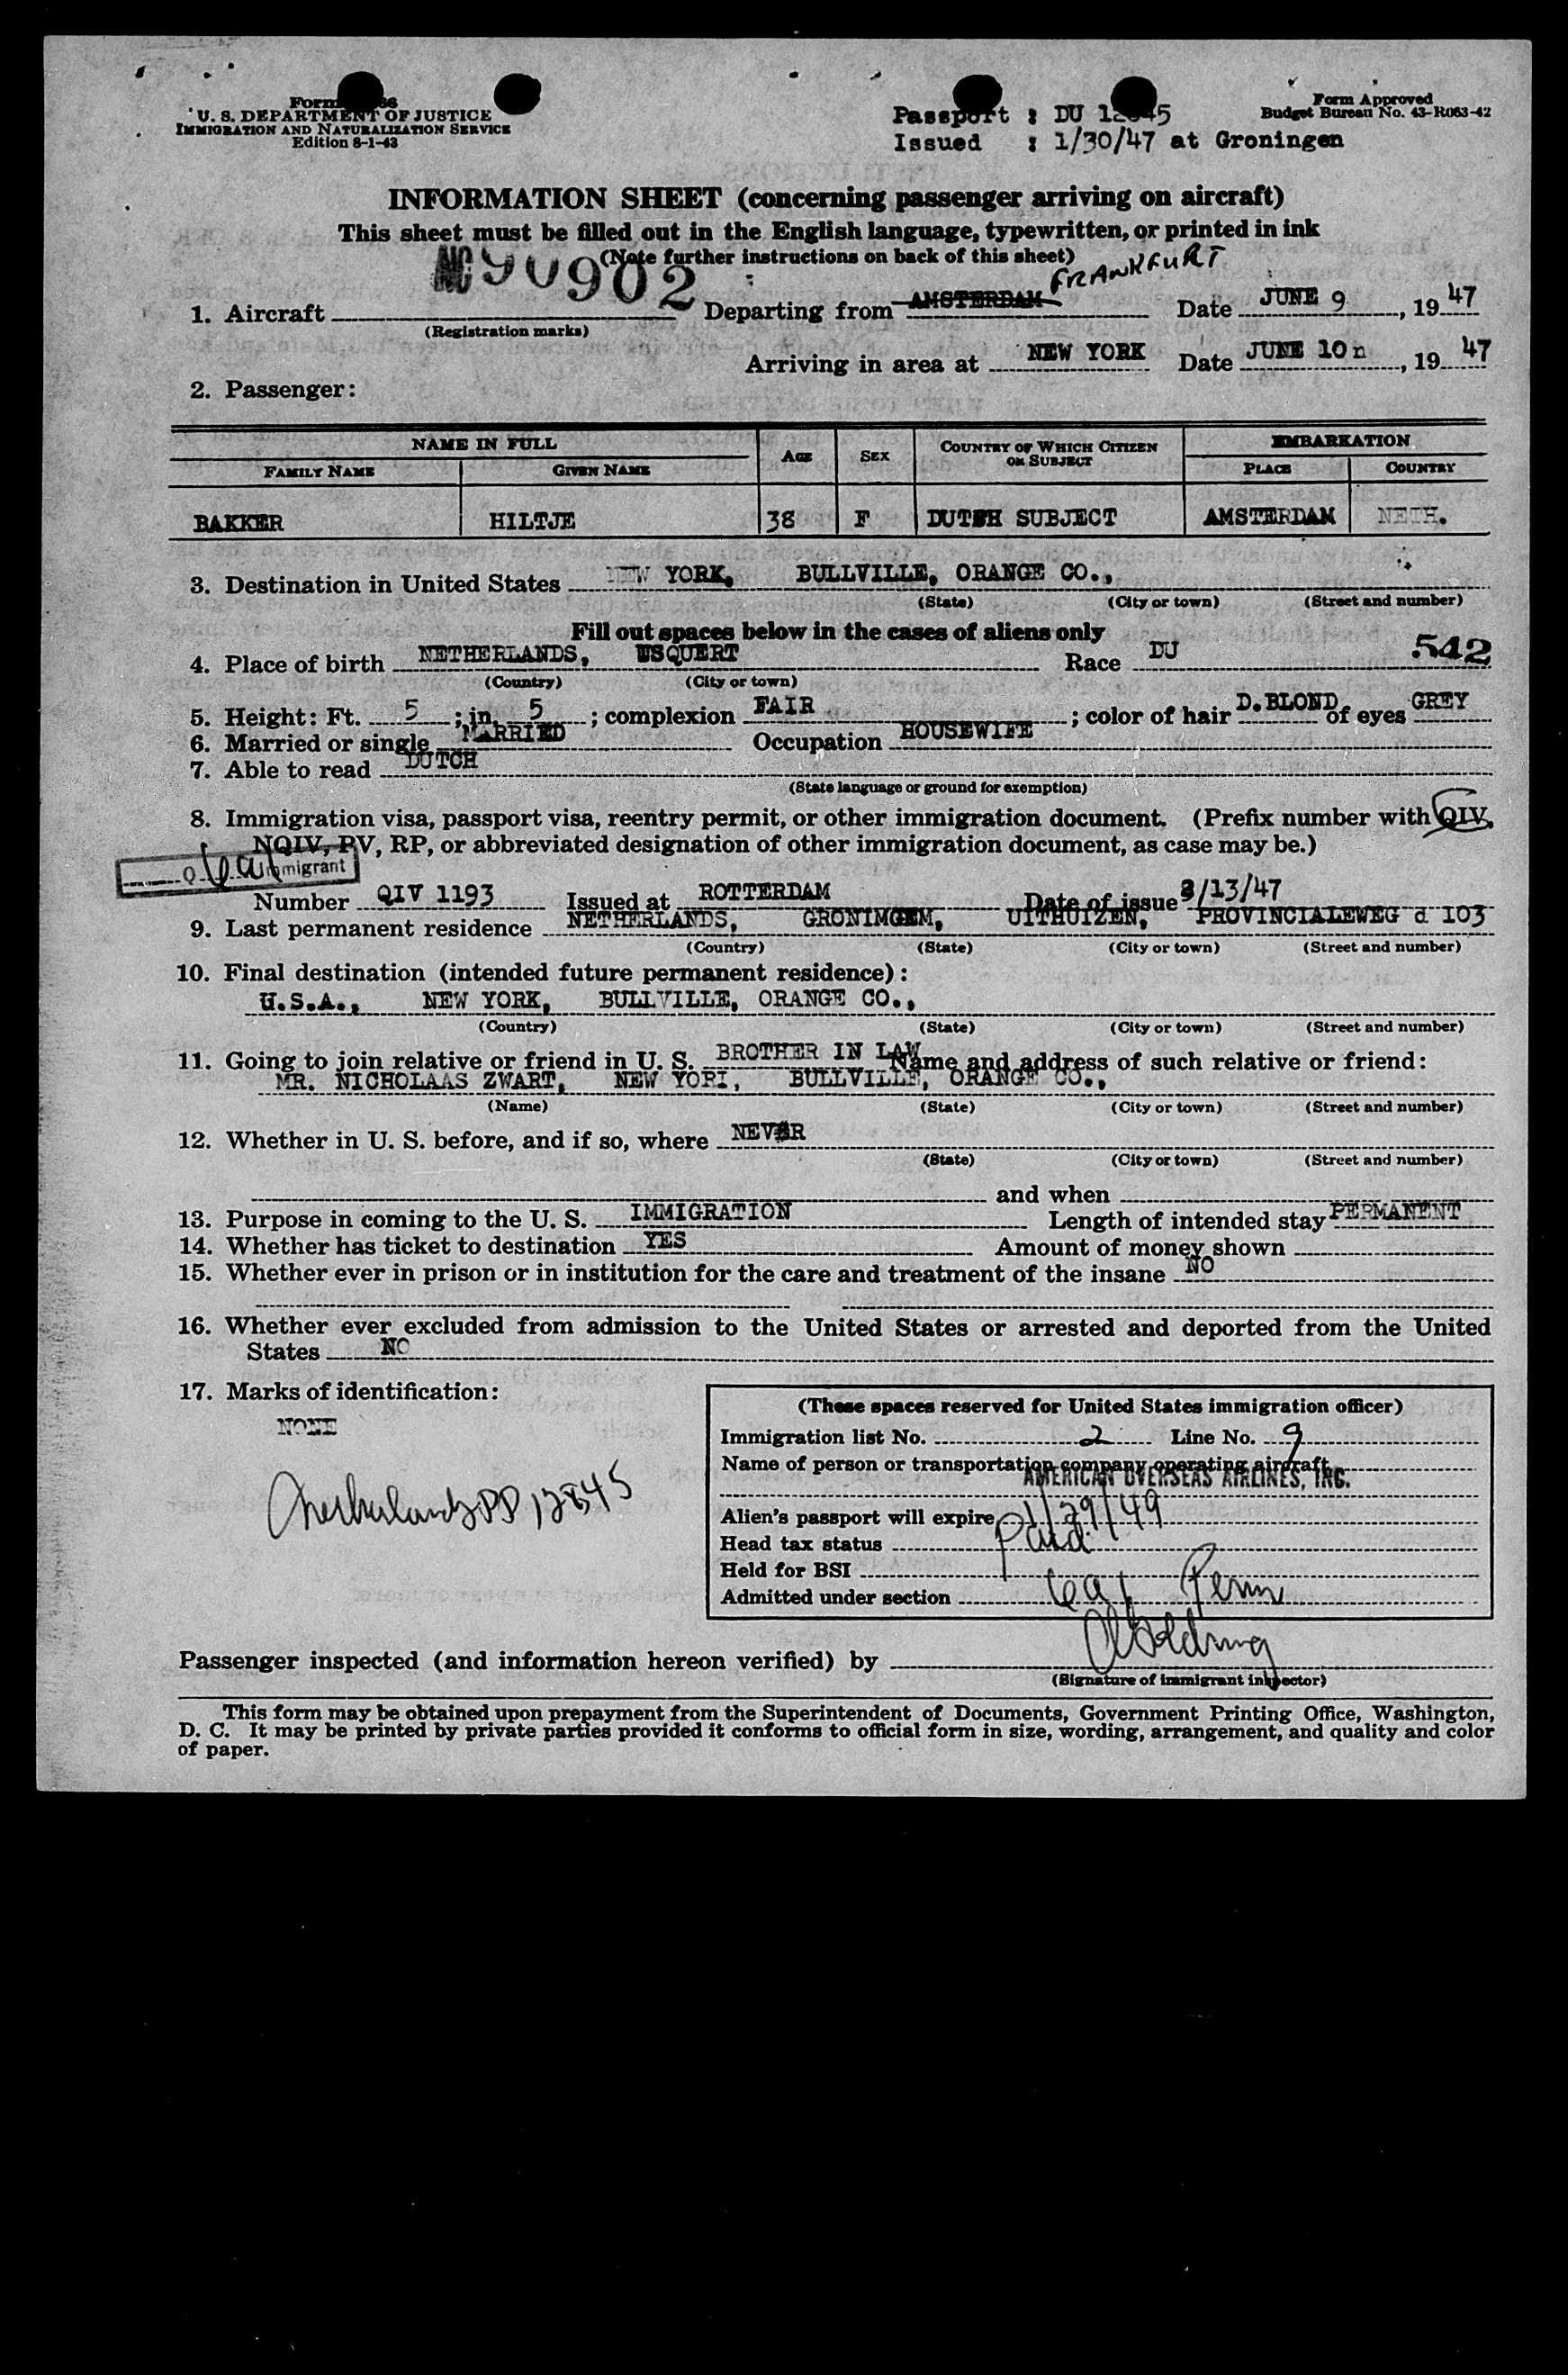 Form
U. S. DEPARTMENT OF JUSTICE
IMMIGRATION AND NATURALIZATION SERVICE
Edition 8-1-43
Passport : DU
Issued : 1/30/47 at Groningen
Form Approved
Budget Bureau No. 43-R063-42
INFORMATION SHEET (concerning passenger arriving on aircraft)
This sheet must be filled out in the English language, typewritten, or printed in ink
(Note further instructions on back of this sheet)
1. Aircraft NC90902 Departing from AMSTERDAM FRANKFURT Date JUNE 9, 1947
(Registration marks)
Arriving in area at NEW YORK Date JUNE 10n, 1947
2. Passenger:
NAME IN FULL AGE SEX COUNTRY OF WHICH CITIZEN OR SUBJECT EMBARKATION
FAMILY NAME GIVEN NAME PLACE COUNTRY
BAKKER HILTJE 38 F DUTCH SUBJECT AMSTERDAM NETH.
3. Destination in United States NEW YORK, BULLVILLE, ORANGE CO.,
(State) (City or town) (Street and number)
Fill out spaces below in the cases of aliens only
4. Place of birth NETHERLANDS, USQUERT Race DU 542
(Country) (City or town)
5. Height: Ft. 5; in. 5; complexion FAIR; color of hair D.BLOND of eyes GREY
6. Married or single MARRIED Occupation HOUSEWIFE
7. Able to read DUTCH
(State language or ground for exemption)
8. Immigration visa, passport visa, reentry permit, or other immigration document. (Prefix number with QIV,
NQIV, PV, RP, or abbreviated designation of other immigration document, as case may be.)
Number QIV 1193 Issued at ROTTERDAM Date of issue 3/13/47
9. Last permanent residence NETHERLANDS, GRONIMGEM, UITHUIZEN, PROVINCIALEWEG d 103
(Country) (State) (City or town) (Street and number)
10. Final destination (intended future permanent residence):
U.S.A., NEW YORK, BULLVILLE, ORANGE CO.,
(Country) (State) (City or town) (Street and number)
11. Going to join relative or friend in U. S. BROTHER IN LAW Name and address of such relative or friend:
MR. NICHOLAAS ZWART, NEW YORI, BULLVILLE, ORANGE CO.,
(Name) (State) (City or town) (Street and number)
12. Whether in U. S. before, and if so, where NEVER
(State) (City or town) (Street and number)
and when
13. Purpose in coming to the U. S. IMMIGRATION Length of intended stay PERMANENT
14. Whether has ticket to destination YES Amount of money shown
15. Whether ever in prison or in institution for the care and treatment of the insane NO
16. Whether ever excluded from admission to the United States or arrested and deported from the United
States NO
17. Marks of identification:
NONE
Netherlands PP 12845
(These spaces reserved for United States immigration officer)
Immigration list No. 2 Line No. 9
Name of person or transportation company operating aircraft
AMERICAN OVERSEAS AIRLINES, INC.
Alien's passport will expire 1/29/49
Head tax status Paid
Held for BSI
Admitted under section 6a1 Perm
Passenger inspected (and information hereon verified) by
(Signature of immigrant inspector)
This form may be obtained upon prepayment from the Superintendent of Documents, Government Printing Office, Washington,
D. C. It may be printed by private parties provided it conforms to official form in size, wording, arrangement, and quality and color
of paper.